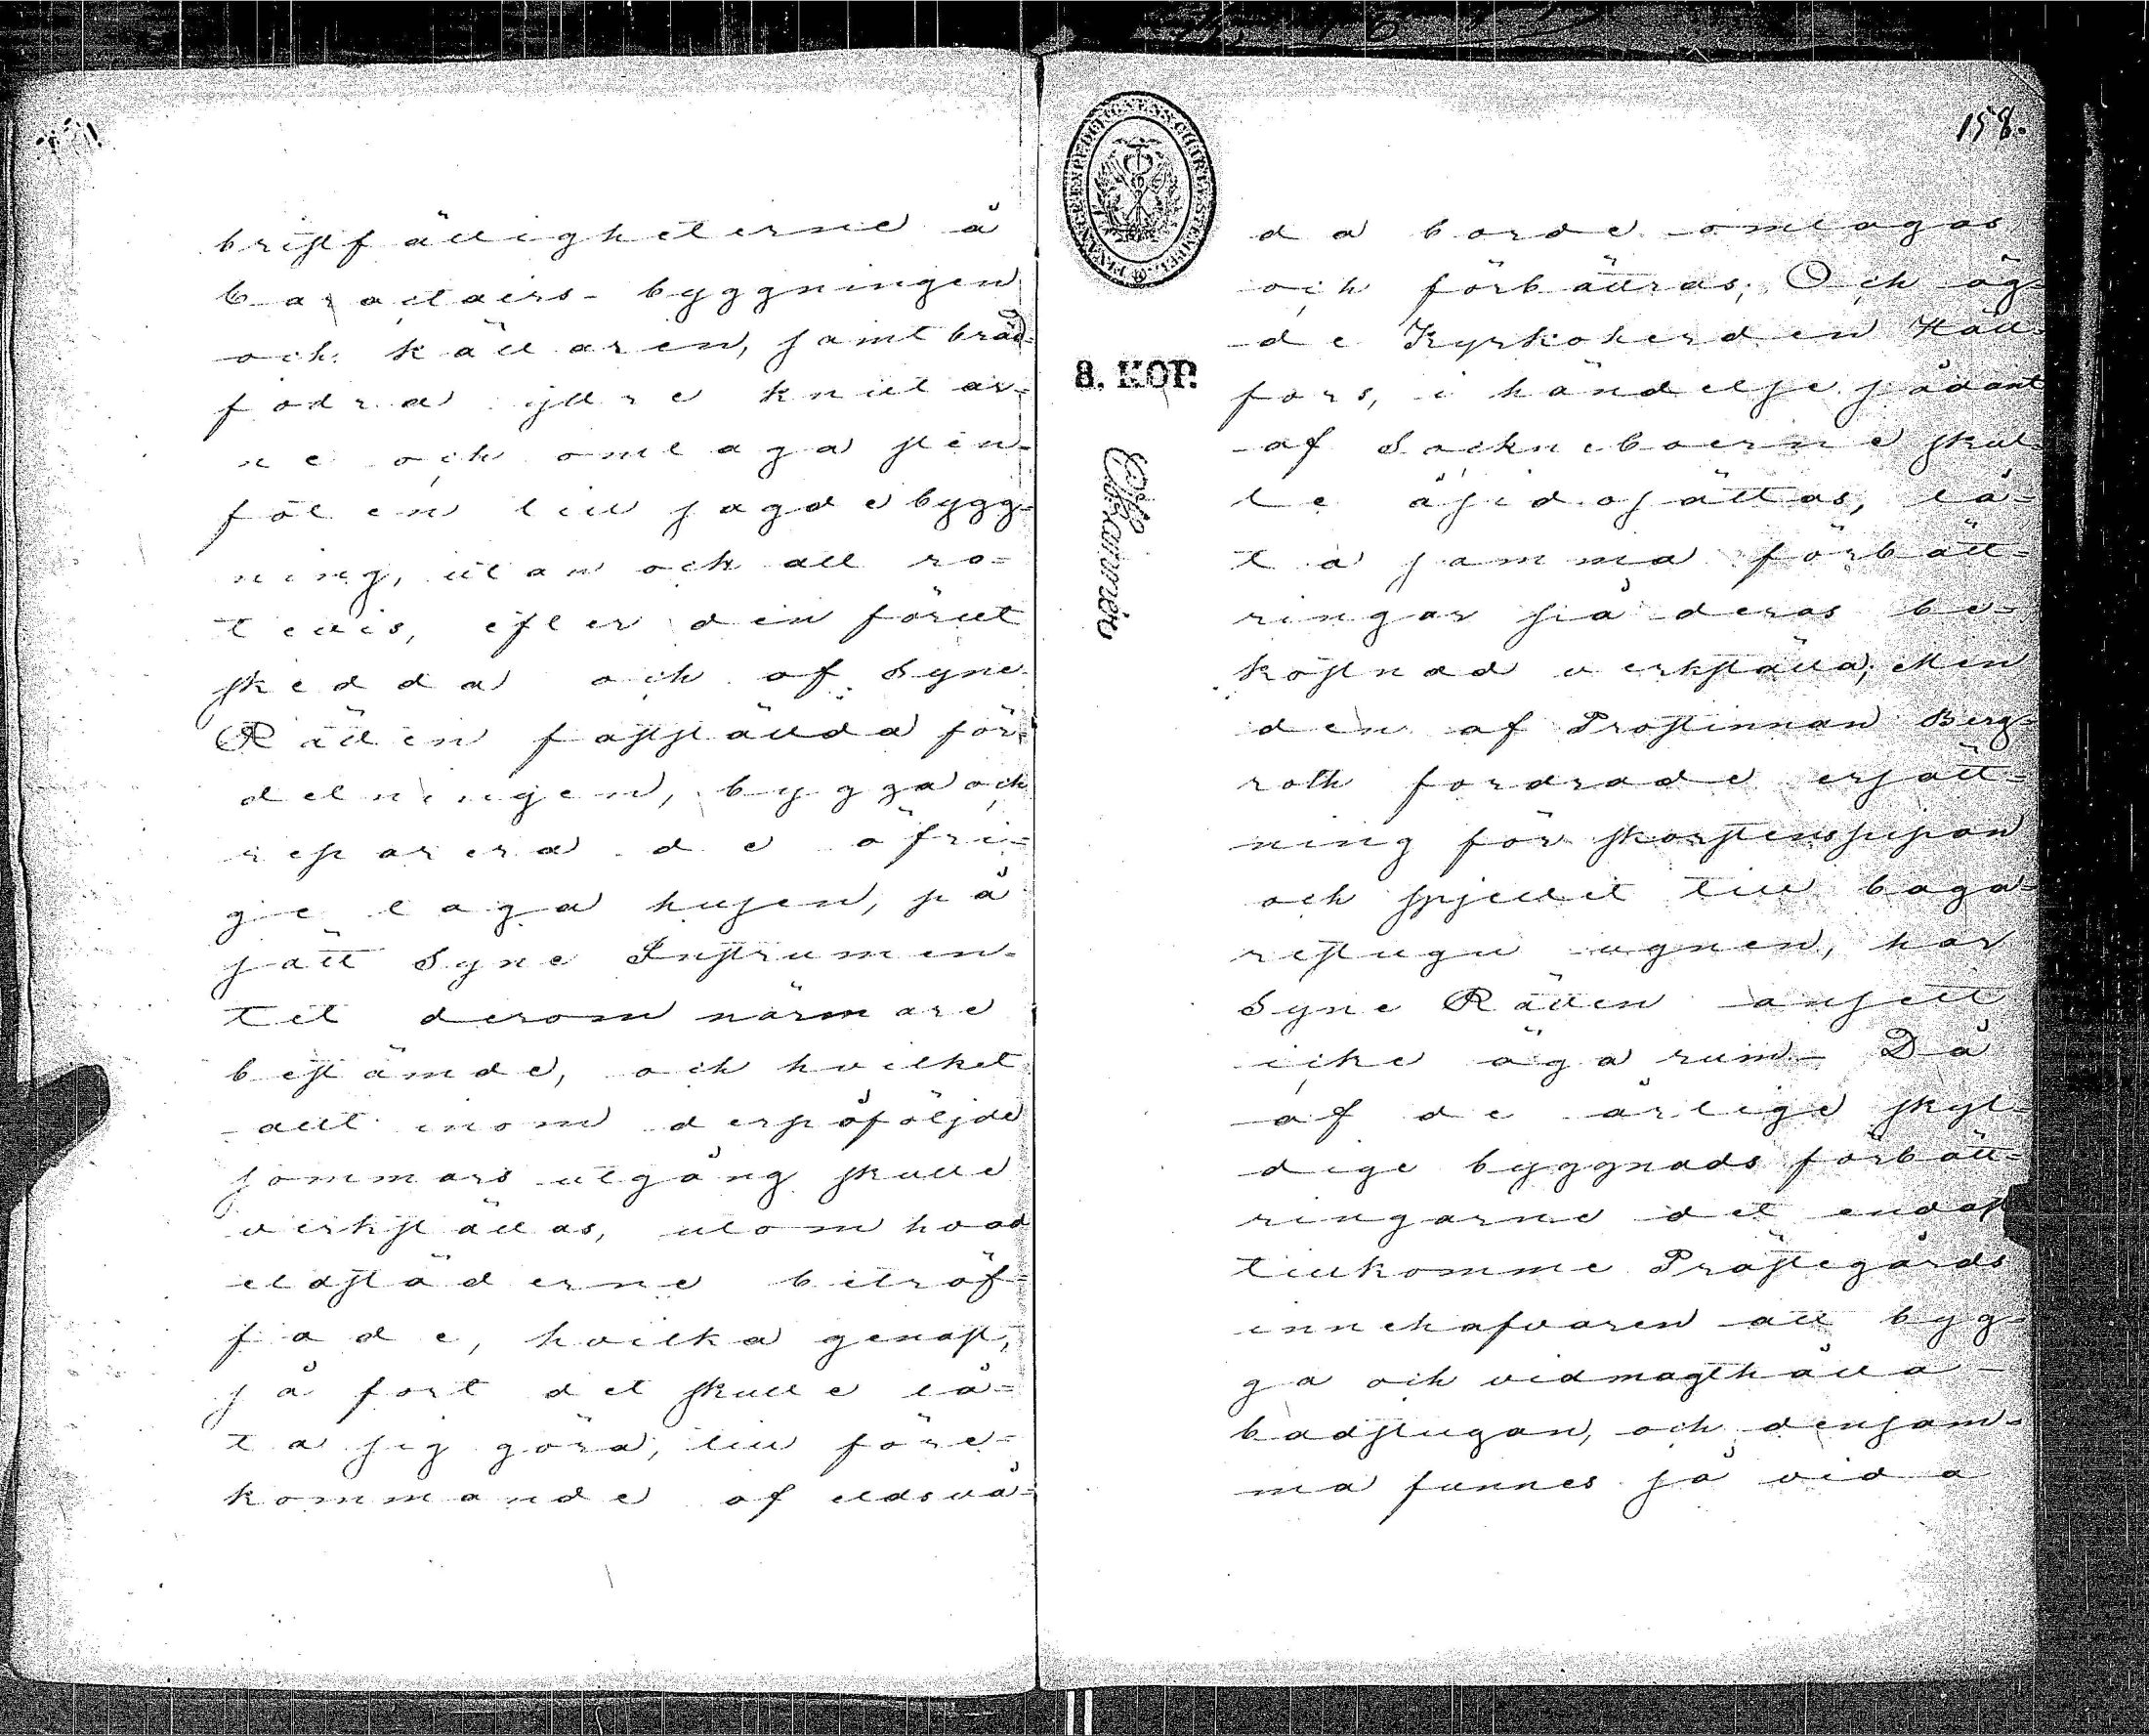 bristfälligheterne å
caractairs-byggningen
och källaren, samt bräd-
fodra yttre knutar-
ne och omlaga sten-
foten till sagde bygg-
ning, utan och all ro-
tevis, efter den förut
skedda och af Syne
Rätten fastställda för-
delningen, bygga och
reparera de öfri-
ge laga husen, på
sätt Syne Instrumen-
tet derom närmare
bestämde, och hvilket
allt inom derpåföljde
sommars utgång skulle
verkställas, utom hvad
eldstäderne beträf-
fade, hvilka genast,
så fort det skulle lå-
ta sig göra, till före-
kommande af eldsvå-
158.
8. KOP.
da borde omlagas
och förbättras; Och äg-
de Kyrkoherden Häll-
fors, i händelse sådant
af Sockneboerne skul-
le åsidosättas, lå-
ta samma förbätt-
ringar på deras be-
kostnad verkställa; Men
den af Prostinnan Berg-
roth fordrade ersätt-
ning för skorstenspipan
och spjellet till baga-
restugu ugnen, har
Syne Rätten ansett
icke äga rum. Då
af de årlige skyl-
dige byggnads förbätt-
ringarne det endast
tillkomme Prästegårds
innehafvaren att byg-
ga och vidmagthålla
badstugan, och densam-
ma funnes på vida